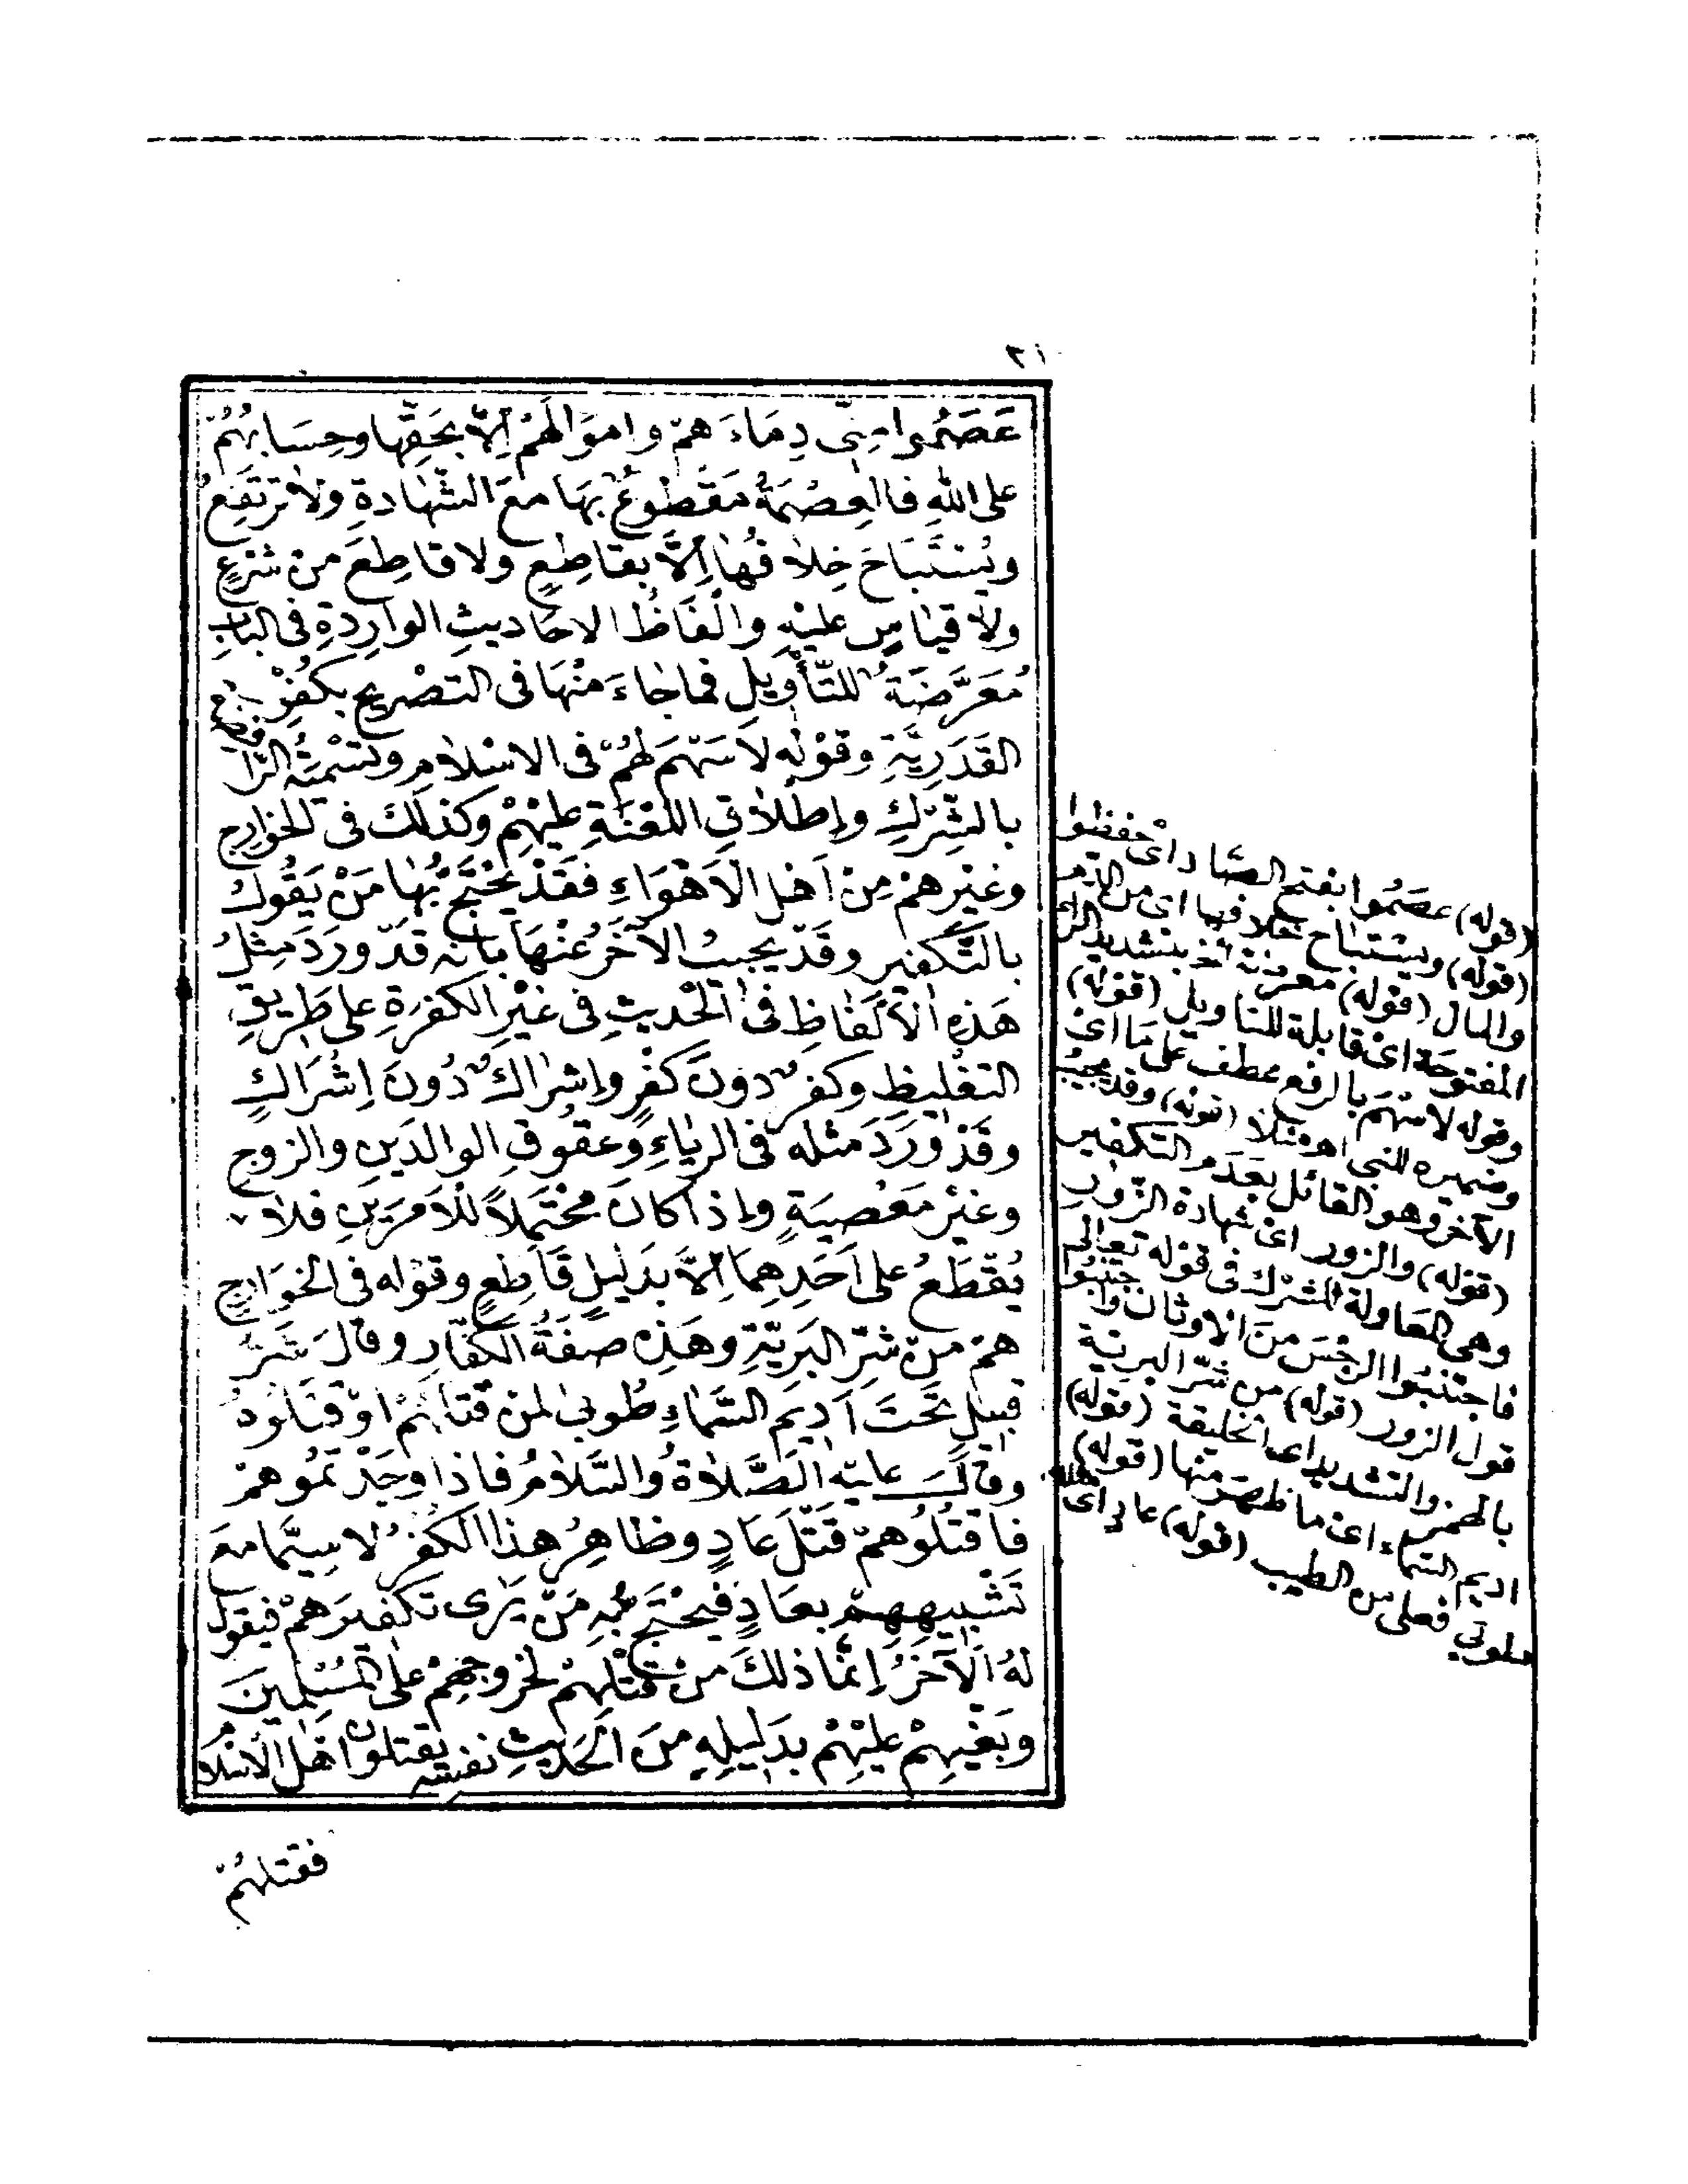 ٢١
عَصَمُوا مِنّى دِمَاءَ هُمْ وامْوَالَهُمْ اِلَّا بحَقِّهَا وحِسَابُهُمْ
على الله فالعِصْمَةُ مَقطوعٌ بهَا معَ الشّهَادةِ ولا ترتَفِعُ
ويُسْتَبَاحَ خِلافُهَا اِلَّا بقاطِعٍ ولا قاطِعَ مِنْ شَرْعٍ
ولا قيَاسٍ عليْهِ والْفَاظُ الاحَاديثِ الوارِدةِ فى البَابِ
مُعَرَّضَةٌ للتّأْويلِ فما جَاءَ مِنْهَا فى التصْريحِ بكُفْرِ
القَدَرِيَّةِ وقوْلِهِ لاسَهْمَ لهُمْ فى الاسْلامِ وتسْمِيَتُهُ الرَّافضة
بالشّرْكِ وإطْلاقِ اللعْنَةِ عليْهِمْ وكذلكَ فى الخوارِجِ
وغيْرِهمْ مِنْ اَهْلِ الاَهْوَاءِ فقَدْ يَحْتَجُّ بهَا مَنْ يَقُولُ
بالتَّكْفيرِ وقَدْ يجيبُ الآخَرُ عنْهَا بأنه قدْ ورَدَ مِثْلُ
هَذِهِ الاَلفَاظِ فى الحْديثِ فى غيْرِ الكفرَةِ على طَريقِ
التغْليظِ وكفرٌ دونَ كفْرٍ وإشْراكٌ دُونَ اِشْرَاكٍ
وقَدْ ورَدَ مثلُه فى الريَاءِ وعقُوقِ الوالدَينِ والزوجِ
وغيْرِ مَعْصيَةٍ وإذا كانَ محْتَمِلًا للاَمْرَيْنِ فلا
يُقْطَعُ على اَحَدِهِمَا اِلَّا بدَليلٍ قَاطِعٍ وقوْله فى الخوَارِجِ
همْ مِنْ شرِّ البَريّةِ وهَذِه صفَةُ الكفّارِ وقالَ شَرُّ
قبيلٍ تحْتَ اَديمِ السَّمَاءِ طُوبى لمنْ قتَلَهُمْ اوْ قتَلُوهُ
وقالَ عليه الصَّلاةُ والسَّلامُ فاذا وجَدْتمُوهمْ
فاقتُلُوهمْ قتْلَ عَادٍ وظاهِرُ هذا الكُفرُ لاسِيَّمَا معَ
تَشْبيهِهِمْ بعَادٍ فيحْتَجُّ بهِ مَنْ يَرى تكفيرَهمْ فيقولُ
لهُ الآخَرُ إنّمَا ذلكَ مِنْ قتْلِهِمْ لخروجِهِمْ على المُسْلِمينَ
وبَغْيِهِمْ عليْهِمْ بدَليلِهِ مِنَ الحَديثِ نفسِه يقتلونَ اهْلَ الاسْلامِ
فقتلهُمْ
(قوله) عصَمُوا بفتح الصّاد اى حفظوا
(قوله) ويستباح خلافها اى من الدم
والمال (قوله) معرضة بتشديد الراء
المفتوحَة اى قابلة للتاويل (قوله)
وقوله لاسَهْمَ بالرفع عطف على مَا اى
وضميره للنبى اهـ منلا (قوله) وقد يجيبُ
الآخر وهو القائل بعَدَم التكفير
(قوله) والزور اى شهادة الزّور
وهى المعَاولة للشرْك فى قوله تعَالى
فاجتنبُوا الرجْسَ منَ الاوثان واجتنبُوا
قول الزور (قوله) من شرّ البريّة
بالهمز والتشديد اى الخليقة (قوله)
اديم السّماء اى ما ظهَر منها (قوله)
طوبى فعلى من الطيب (قوله) عاد اى